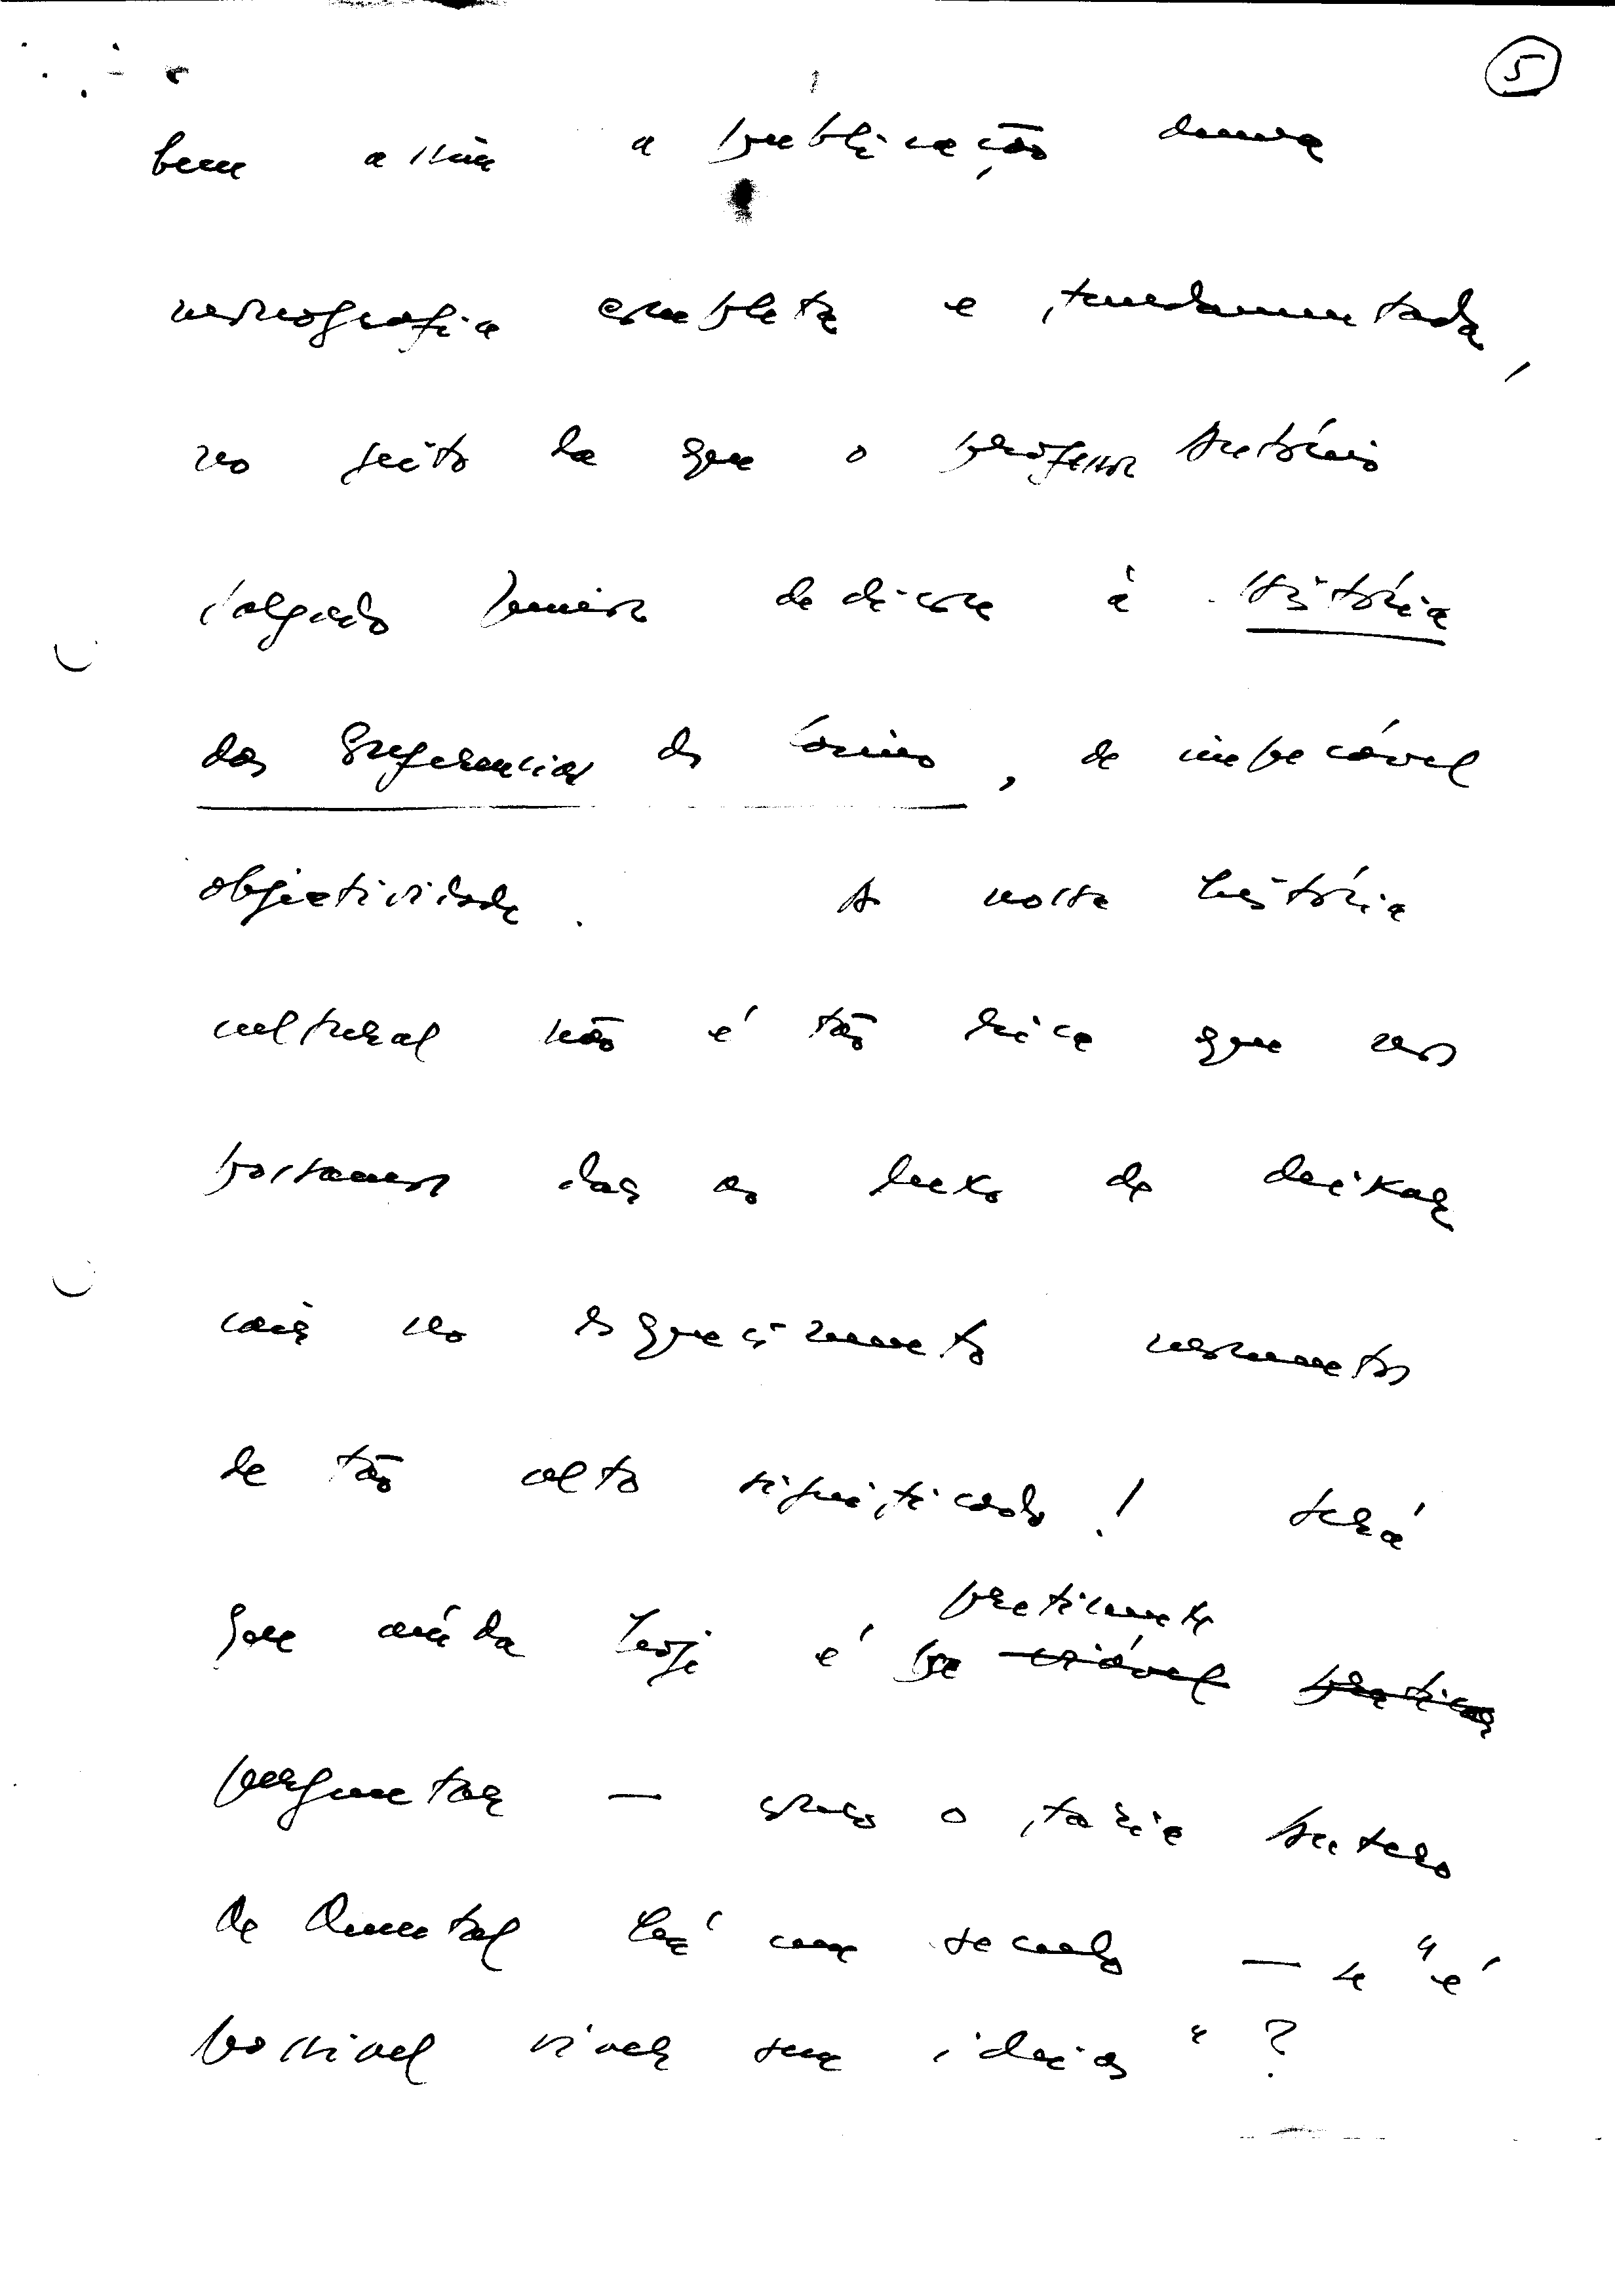 5
bem assim a publicação duma
monografia completa e fundamentada,
no jeito da que o professor António
Salgado Júnior dedicou à História
das Conferências do Casino, de impecável
objectividade. A nossa história
cultural não é tão rica que nos
possamos dar ao luxo de deixar
cair no esquecimento momentos
de tão alto significado! Será
que ainda hoje é pertinente
perguntar — como o fazia Antero
de Quental há um século — se "é
possível viver sem ideias"?